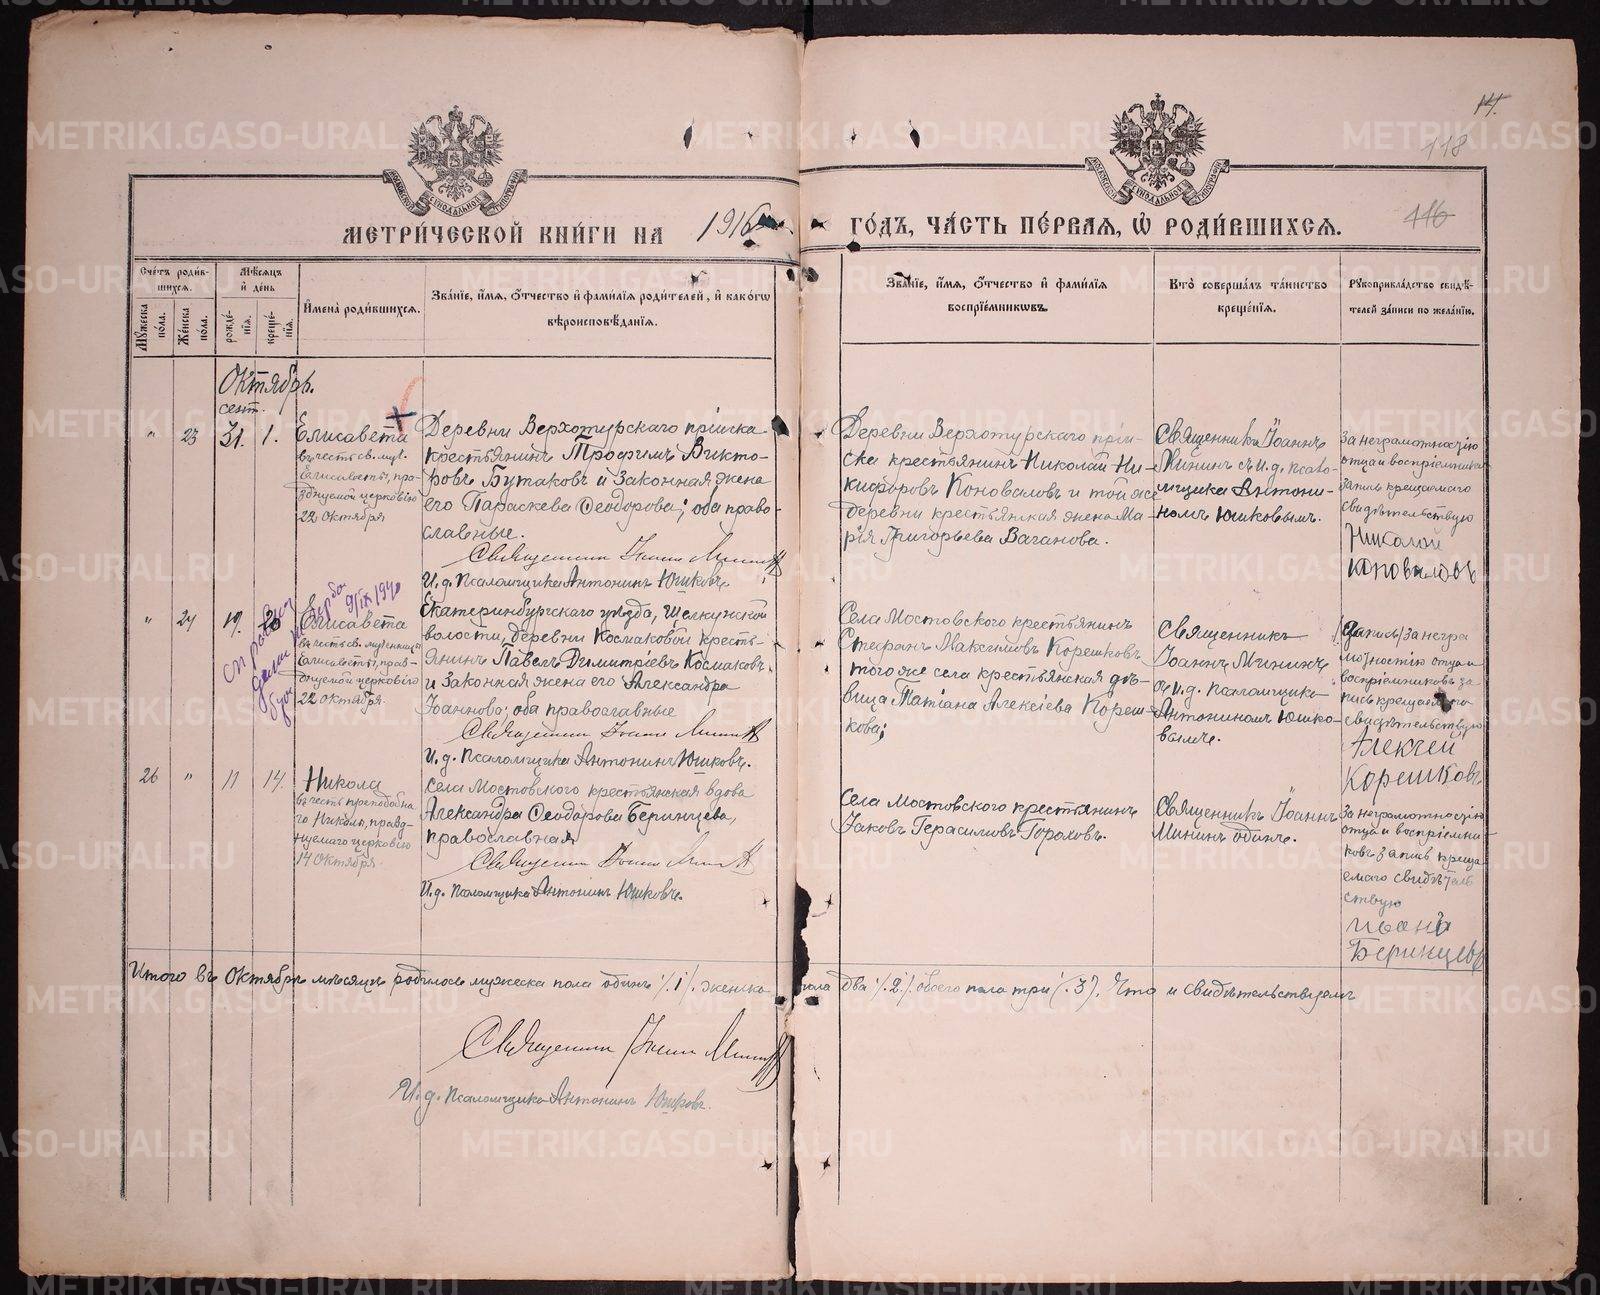 14.
118
116
МЕТРИ́ЧЕСКОЙ КНИ́ГИ НА 1916 ГО́ДЪ, ЧА́СТЬ ПЕ́РВАЯ, Ѽ РОДИ́ВШИХСЯ.
МОСКОВСКОЙ СИНОДАЛЬНОЙ ТИПОГРАФІИ
МОСКОВСКОЙ СИНОДАЛЬНОЙ ТИПОГРАФІИ
Счетъ роди́в-
шихся.
Мѣсяцъ
и день
Мужеска по́ла.
Же́нска по́ла.
рожде́-
нія.
креще́-
нія.
Имена̀ роди́вшихся.
Зва́ніе, и́мя, о́тчество и фами́лія роди́телей, и како́гѡ
вѣроисповѣ́данія.
Зва́ніе, и́мя, о́тчество и фами́лія
воспріе́мниковъ.
Кто̀ соверша́лъ та́инство
креще́нія.
Рукоприкла́дство свидѣ́-
телей за́писи по жела́нію.
Октябрь.
сент.
" 23 31. 1.
Елисавета
въ честь св. муч.
Елисаветы, пра-
зднуемой церковію
22 Октября
Деревни Верхотурскаго пріиска
крестьянинъ Трофимъ Викто-
ровъ Бутаковъ и законная жена
его Параскева Ѳеодорова; оба право-
славные.
Священникъ Іоаннъ Мининъ
И. д. Псаломщика Антонинъ Юшковъ
Деревни Верхотурскаго прі-
ска крестьянинъ Николай Ни-
кифоровъ Коноваловъ и той же
деревни крестьянская жена Ма-
рія Григорьева Ваганова.
Священникъ Іоаннъ
Мининъ съ и. д. псало-
мщика Антони-
номъ Юшковымъ.
За неграмотностію
отца и воспріемника
запись крещаемаго
свидѣтельствую
Николай
Коноваловъ
" 24 19. 20
справки
9/IX 1940
Елисавета
въ честь св. мученицы
Елисаветы, праз-
днуемой церковію
22 октября
Екатеринбургскаго уѣзда, Щелкунской
волости, деревни Космаковой кресть-
янинъ Павелъ Димитріевъ Космаковъ
и законная жена его Александра
Іоаннова; оба православные
Священникъ Іоаннъ Мининъ
И. д. Псаломщика Антонинъ Юшковъ.
Села Мостовского крестьянинъ
Стефанъ Максимовъ Корешковъ
того же села крестьянская дѣ-
вица Татіана Алексіева Кореш-
кова;
Священникъ
Іоаннъ Мининъ
съ и. д. псаломщика
Антониномъ Юшко-
вымъ.
Запись за негра
мотностію отца и
воспріемниковъ за
пись крещаемаго
свидѣтельствую
Алексей
Корешковъ
26 " 11 14.
Никола
въ честь преподобна
го Николы, празд-
нуемаго церковію
14 Октября
Села Мостовского крестьянская вдова
Александра Ѳеодорова Беринцева,
православная
Священникъ Іоаннъ Мининъ
И. д. псаломщика Антонинъ Юшковъ.
Села Мостовского крестьянинъ
Іаковъ Герасимовъ Гороховъ.
Священникъ Іоаннъ
Мининъ одинъ.
За неграмотностію
отца и воспріемни
ковъ запись креща
емаго свидѣтель
ствую
Иванъ
Беринцевъ
Итого въ Октябрѣ мѣсяцѣ родилось мужеска пола одинъ /.1/. женска пола два /.2/. обоего пола три /.3/. Что и свидѣтельствуемъ
Священникъ Іоаннъ Мининъ
И. д. псаломщика Антонинъ Юшковъ.